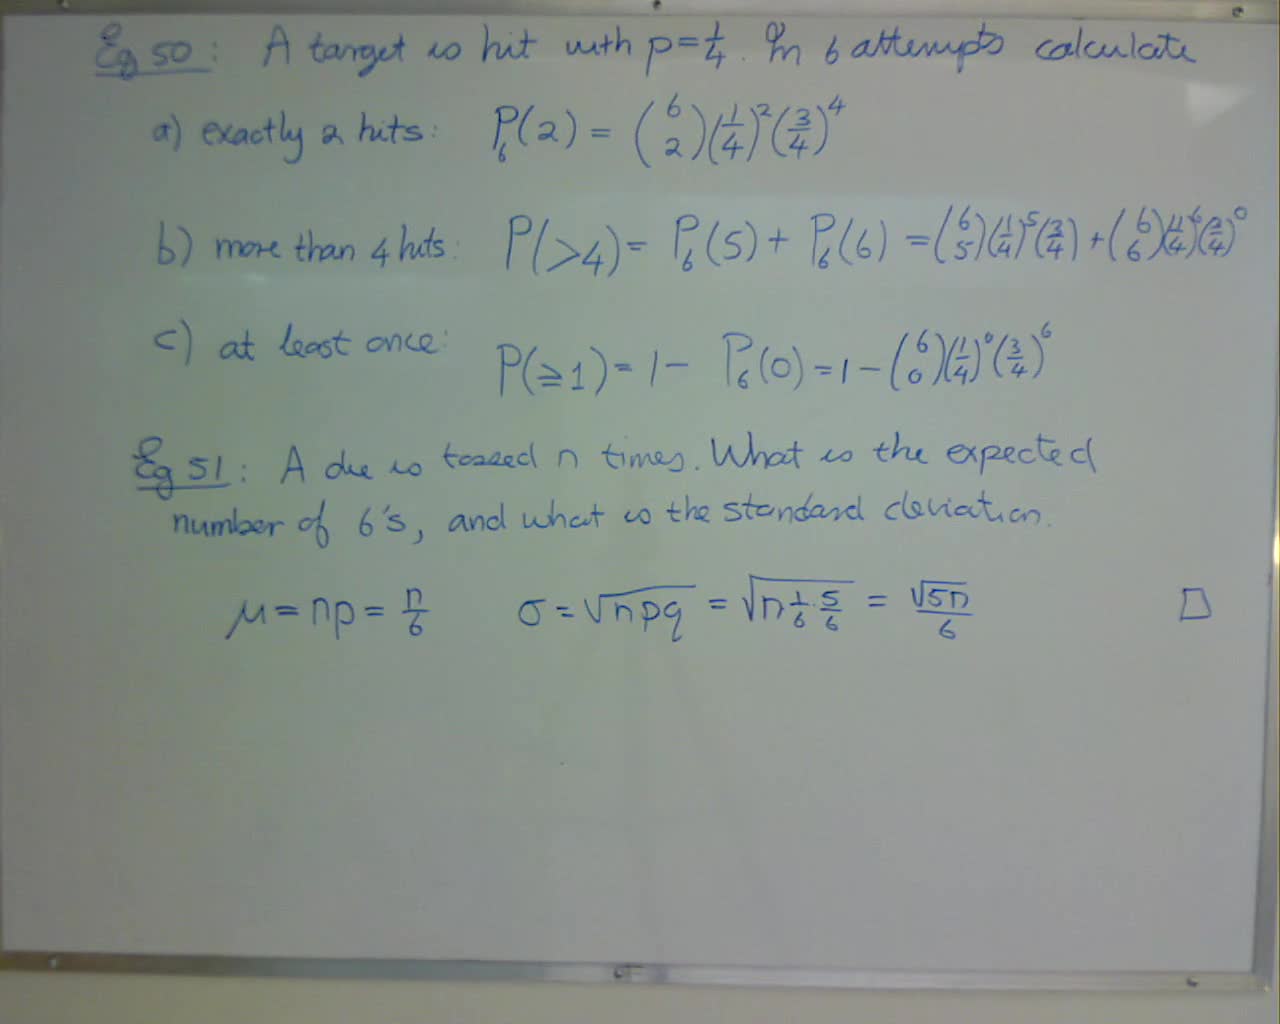 Eg 50: A target is hit with p=1/4. In 6 attempts calculate
a) exactly 2 hits: P₆(2) = (6 2)(1/4)²(3/4)⁴
b) more than 4 hits: P(>4) = P₆(5) + P₆(6) = (6 5)(1/4)⁵(3/4) + (6 6)(1/4)⁶(3/4)⁰
c) at least once: P(≥1) = 1 − P₆(0) = 1 − (6 0)(1/4)⁰(3/4)⁶
Eg 51: A die is tossed n times. What is the expected
number of 6's, and what is the standard deviation.
μ = np = n/6 σ = √npq = √n 1/6 · 5/6 = √5n/6 □